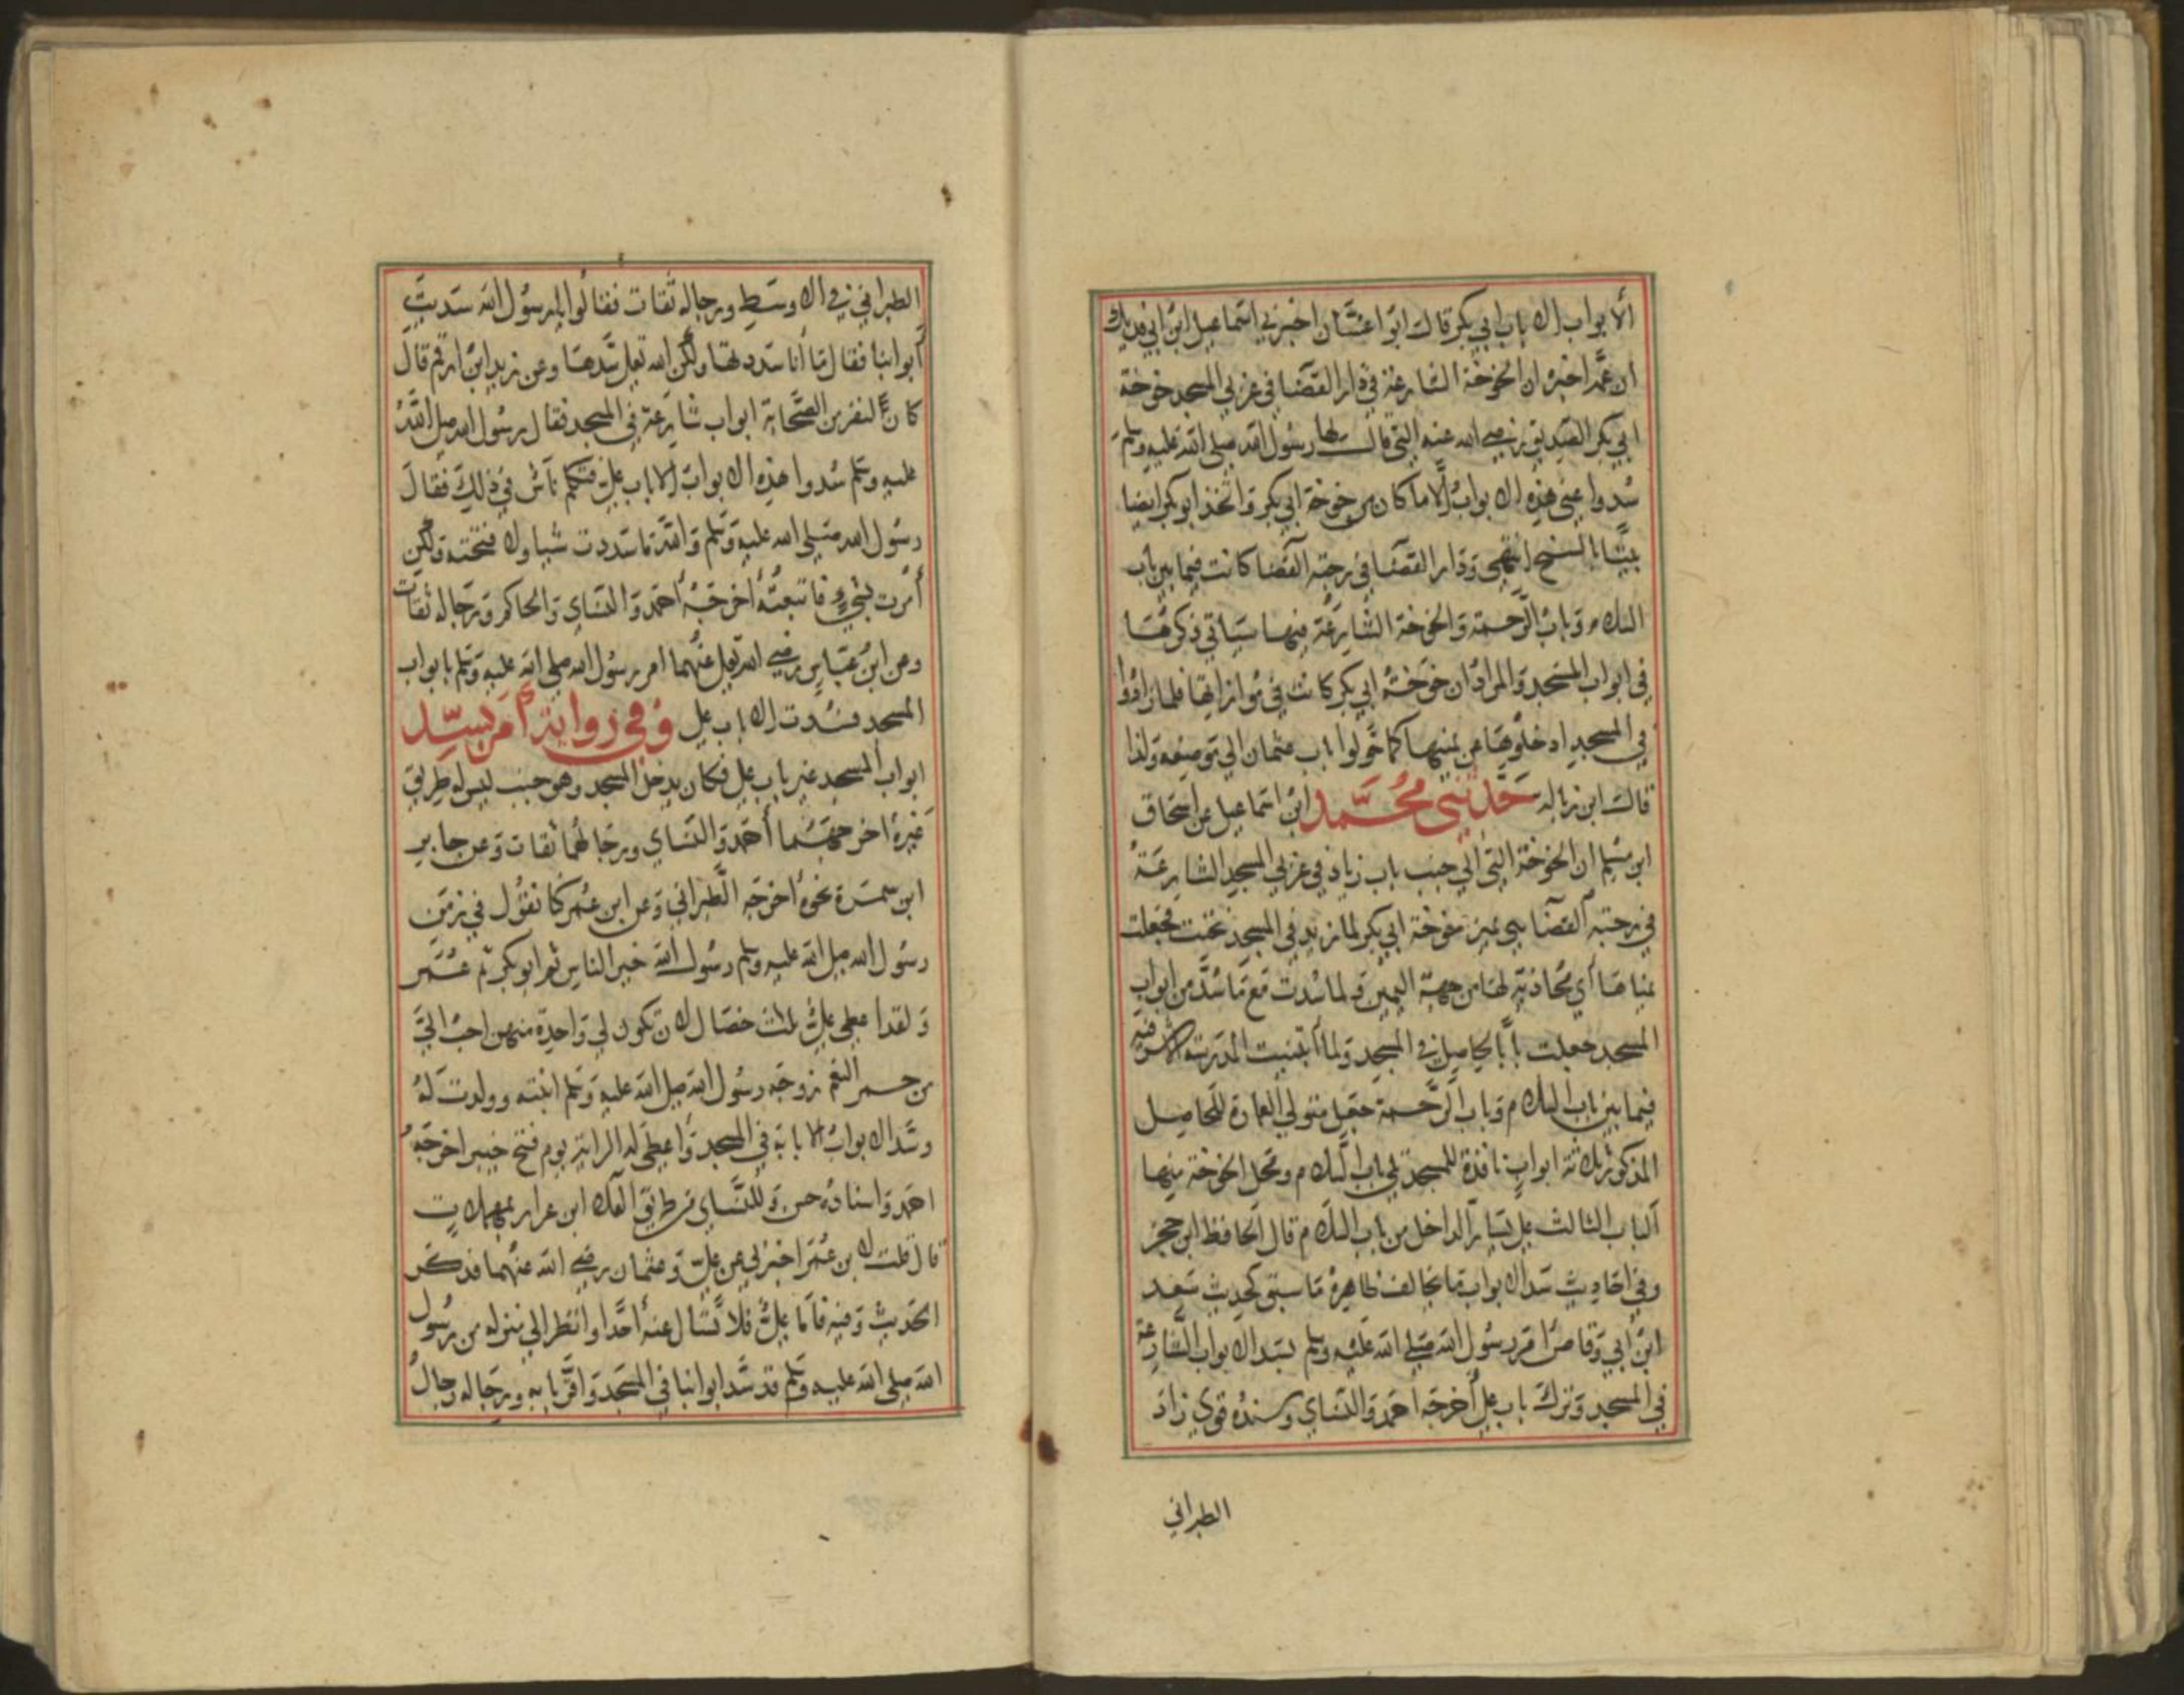 الأبواب الا باب ابي بكر قال ابو اغسّان اخبرني اسماعيل ابن ابي فديك
ان عمّه اخبره ان الخوخة الشارعة في دار القضا في غربي المسجد خوخة
ابي بكر الصديق رضي الله عنه التي قال لها رسول الله صلى الله عليه وسلم
سُدوا عني هذه الابواب الّا ما كان من خوخة ابي بكر واتخذ ابو بكر ايضا
بيتًا بالسنح انتهى ودار القضا في رحبة القضا كانت فيما بين باب
السلام وباب الرحمة والخوخة الشارعة منها سيأتي ذكرها
في ابواب المسجد والمراد ان خوخة ابي بكر كانت في موازاتها فلما زادوا
في المسجد ادخلوها من يمنها كما حَولوا باب عثمان الي موضعه ولذا
قال ابن زباله حدثني محمّد ابن اسماعيل عن اسحاق
ابن مسلم ان الخوخة التي الي جنب باب زياد في غربي المسجد الشارعة
في رحبة القضا هي يمين خوخة ابي بكر لما زيد في المسجد نحيت فجعلت
يمناها أي محاذية لها من جهة اليمين ولما سُدت مع ما سُدّ من ابواب
المسجد جعلت بابًا لحاصل في المسجد ولما ابتنيت المدرسة الاشرفيه
فيما بين باب السلام وباب الرحمة جعل متولي العمارة للحاصل
المذكور ثلاثة ابواب نافذة للمسجد تلي باب السلام ومحل الخوخة منها
الباب الثالث علي يسار الداخل من باب السلام قال الحافظ ابن حجر
وفي احاديث سد الابواب ما يخالف ظاهره ما سبق كحديث سعد
ابن أبي وقاص امر رسول الله صلى الله عليه وسلم بسد الابواب الشارعة
في المسجد وترك باب علي أخرجه احمد والنساي وسنده قوي زاد
الطبراني
الطبراني في الاوسط ورجاله ثقات فقالوا يا رسول الله سددت
أبوابنا فقال ما أنا سددتها ولكن الله تعالى سدها وعن زيد ابن ارقم قال
كان لنفر من الصحابة ابواب شارعة في المسجد فقال رسول الله صلى الله
عليه وسلم سُدوا هذه الابواب الا باب علي فتكلم ناس في ذلك فقال
رسول الله صلى الله عليه وسلم والله ما سددت شيا ولا فتحته ولكن
أمرت بشيء فاتبعته أخرجه أحمد والنساي والحاكم ورجاله ثقات
وعن ابن عباس رضي الله تعالى عنهما امر رسول الله صلى الله عليه وسلم بابواب
المسجد فسُدت الا باب علي وفي رواية أمر بسدّ
ابواب المسجد غير باب علي فكان يدخل المسجد وهو جنب ليس له طريق
غيره اخرجهما أحمد والنساي ورجالهما ثقات وعن جابر
ابن سمرة نحوه اخرجه الطبراني وعن ابن عمر كنا نقول في زمن
رسول الله صلى الله عليه وسلم رسول الله خير الناس ثم ابو بكر ثم عمر
ولقد اعطي علي ثلاث خصال لان تكون لي واحدة منهن احب الي
من حمر النعم زوجه رسول الله صلى الله عليه وسلم ابنته وولدت له
وسد الابواب الا بابه في المسجد وأعطى له الراية يوم فتح خيبر اخرجه
احمد واسناده حسن وللنساي من طريق العلا ابن عرار بمهملات
قال قلت لابن عمر اخبرني عن علي وعثمان رضي الله عنهما فذكر
الحديث وفيه فاما علي فلا تسال عنه أحدا وانظر الي منزله من رسول
الله صلى الله عليه وسلم قد سد ابوابنا في المسجد واقرّ بابه ورجاله رجال